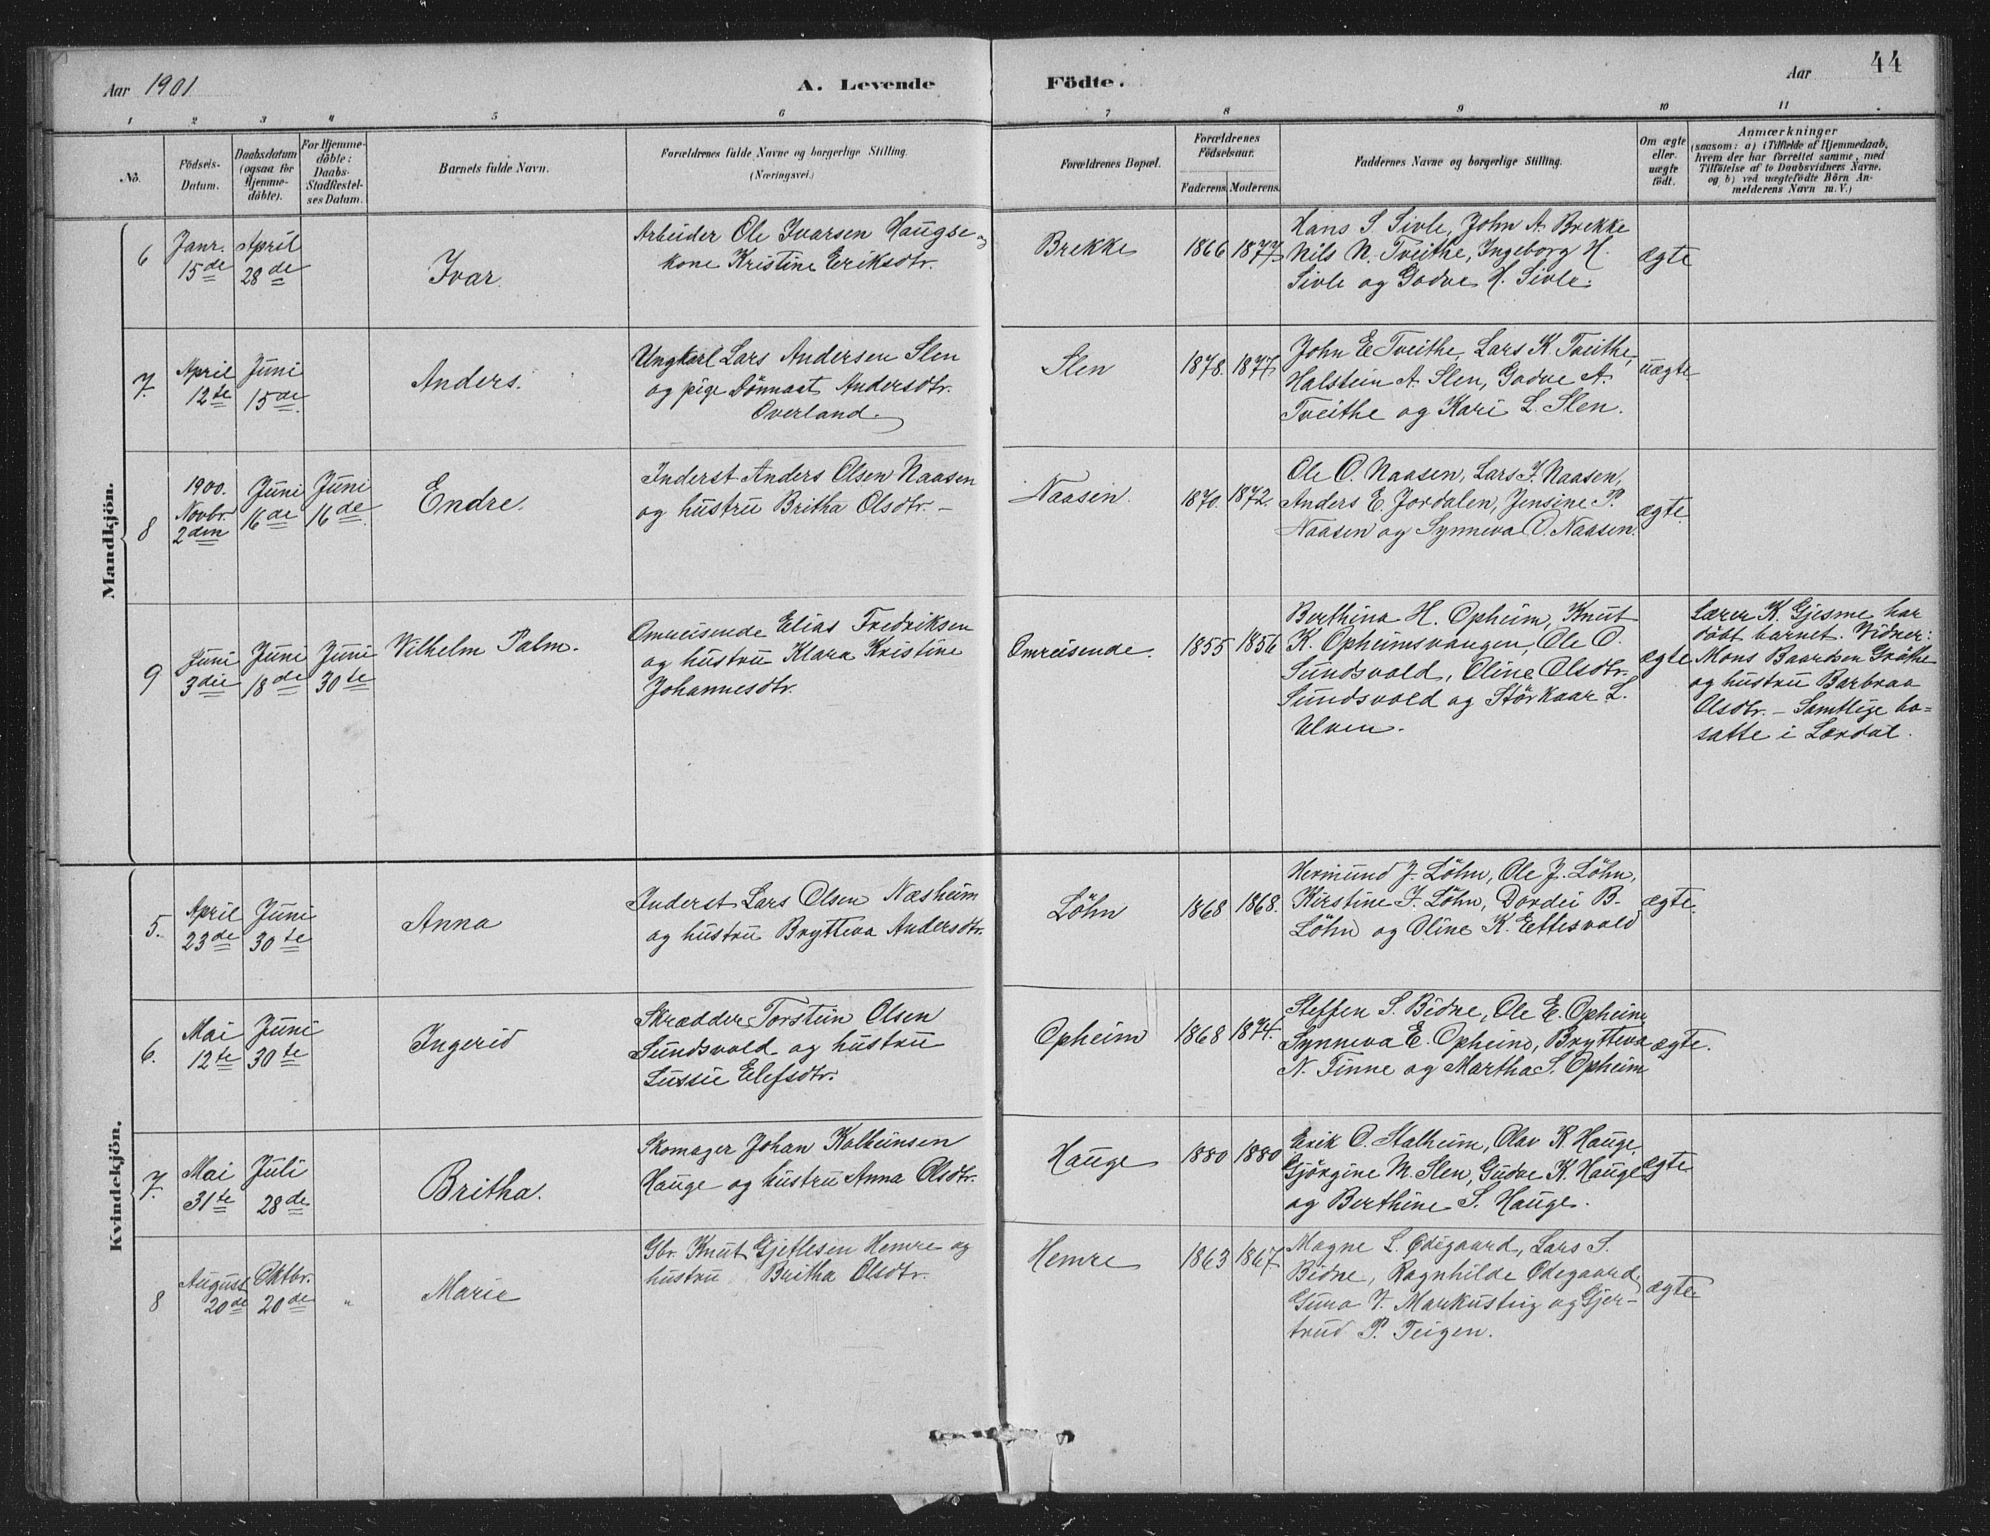 Aar 1901
A. Levende
Födte.
Aar
44
1 2 3 4 5 6 7 8 9 10 11
No.
Födsels-
Datum.
Daabsdatum
(ogsaa for
Hjemme-
döbte).
For Hjemme-
döbte:
Daabs-
Stadfæstel-
ses Datum.
Barnets fulde Navn.
Forældrenes fulde Navne og borgerlige Stilling.
(Næringsvei.)
Forældrenes Bopæl.
Forældrenes
Födselsaar.
Faderens. Moderens.
Faddernes Navne og borgerlige Stilling.
Om ægte
eller
uægte
födt.
Anmærkninger
(saasom: a) i Tilfælde af Hjemmedaab,
hvem der har forrettet samme, med
Tilföielse af to Daabsvidners Navne,
og b) ved uægtefödte Börn An-
melderens Navn m. V.)
Mandkjön.
6
Janr.
15de
April
28de
Ivar
Arbeider Ole Ivarsen Haugse og
kone Kristine Eriksdtr.
Brekke
1866 1877
Hans S Sivle, John A. Brekke
Nils N. Tveithe, Ingeborg H.
Sivle og Gudve H. Sivle.
ægte
7.
April
12te
Juni
15de
Anders.
Ungkarl Lars Andersen Slen
og pige Dönnaat Andersdtr.
Overland.
Slen
1878. 1877.
John E Tveithe, Lars K. Tveithe,
Halstein A. Slen, Gudve A.
Tveithe og Kari L. Slen.
uægte
8
1900.
Novbr.
2den
Juni
16de
Juni
16de
Endre.
Inderst Anders Olsen Naasen
og hustru Britha Olsdtr. –
Naasen.
1870. 1872.
Ole O. Naasen, Lars J. Naasen,
Anders E. Jordalen, Jensine P.
Naasen og Synneva O. Naasen.
ægte.
9
Juni
3die
Juni
18de
Juni
30te
Vilhelm Palm.
Omreisende Elias Fredriksen
og hustru Klara Kristine
Johannesdtr.
Omreisende.
1855 1856
Berthina H. Opheim, Knut
K. Opheimsvangen, Ole O.
Sundsvold, Oline Olsdtr.
Sundsvold og Störkaar L.
Ulven.
ægte
Lærer K. Gjesme har
döbt barnet. Vidner:
Mons Baardsen Gröthe
og hustru Barbraa
Olsdtr. – Samtlige bo=
satte i Lærdal.
Kvindekjön.
5.
April
23de
Juni
30te
Anna
Inderst Lars Olsen Næsheim
og hustru Brytteva Andersdtr.
Löhn
1868 1868.
Hermund J. Löhn, Ole J. Löhn,
Kirstine J. Löhn, Dordei B.
Löhn og Oline K. Eettesvold
ægte.
6.
Mai
12te
Juni
30te
Ingerid
Skrædder Torstein Olsen
Sundsvold og hustru
Sussie Elefsdtr.
Opheim
1868 1874.
Steffen S. Bidne, Ole E. Opheim,
Synneva E. Opheim, Brytteva
N. Finne og Martha S. Opheim
ægte.
7.
Mai
31te
Juli
28de
Britha.
Skomager Johan Kolbeinsen
Hauge og hustru Anna Olsdtr.
Hauge
1880 1880
Erik O. Stalheim, Olav K Hauge,
Gjörgine M. Slen, Gudve K. Hauge
og Berthine S. Hauge.
ægte
8
August
20de
Oktbr.
20de
"
Marie
Gbr. Knut Gjetlesen Hemre og
hustru Britha Olsdtr.
Hemre
1863 1867
Magne L. Ødegaard, Lars S.
Bidne, Ragnhilde Ødegaard,
Guro I. Markusteig og Gjer-
trud P. Teigen.
ægte.